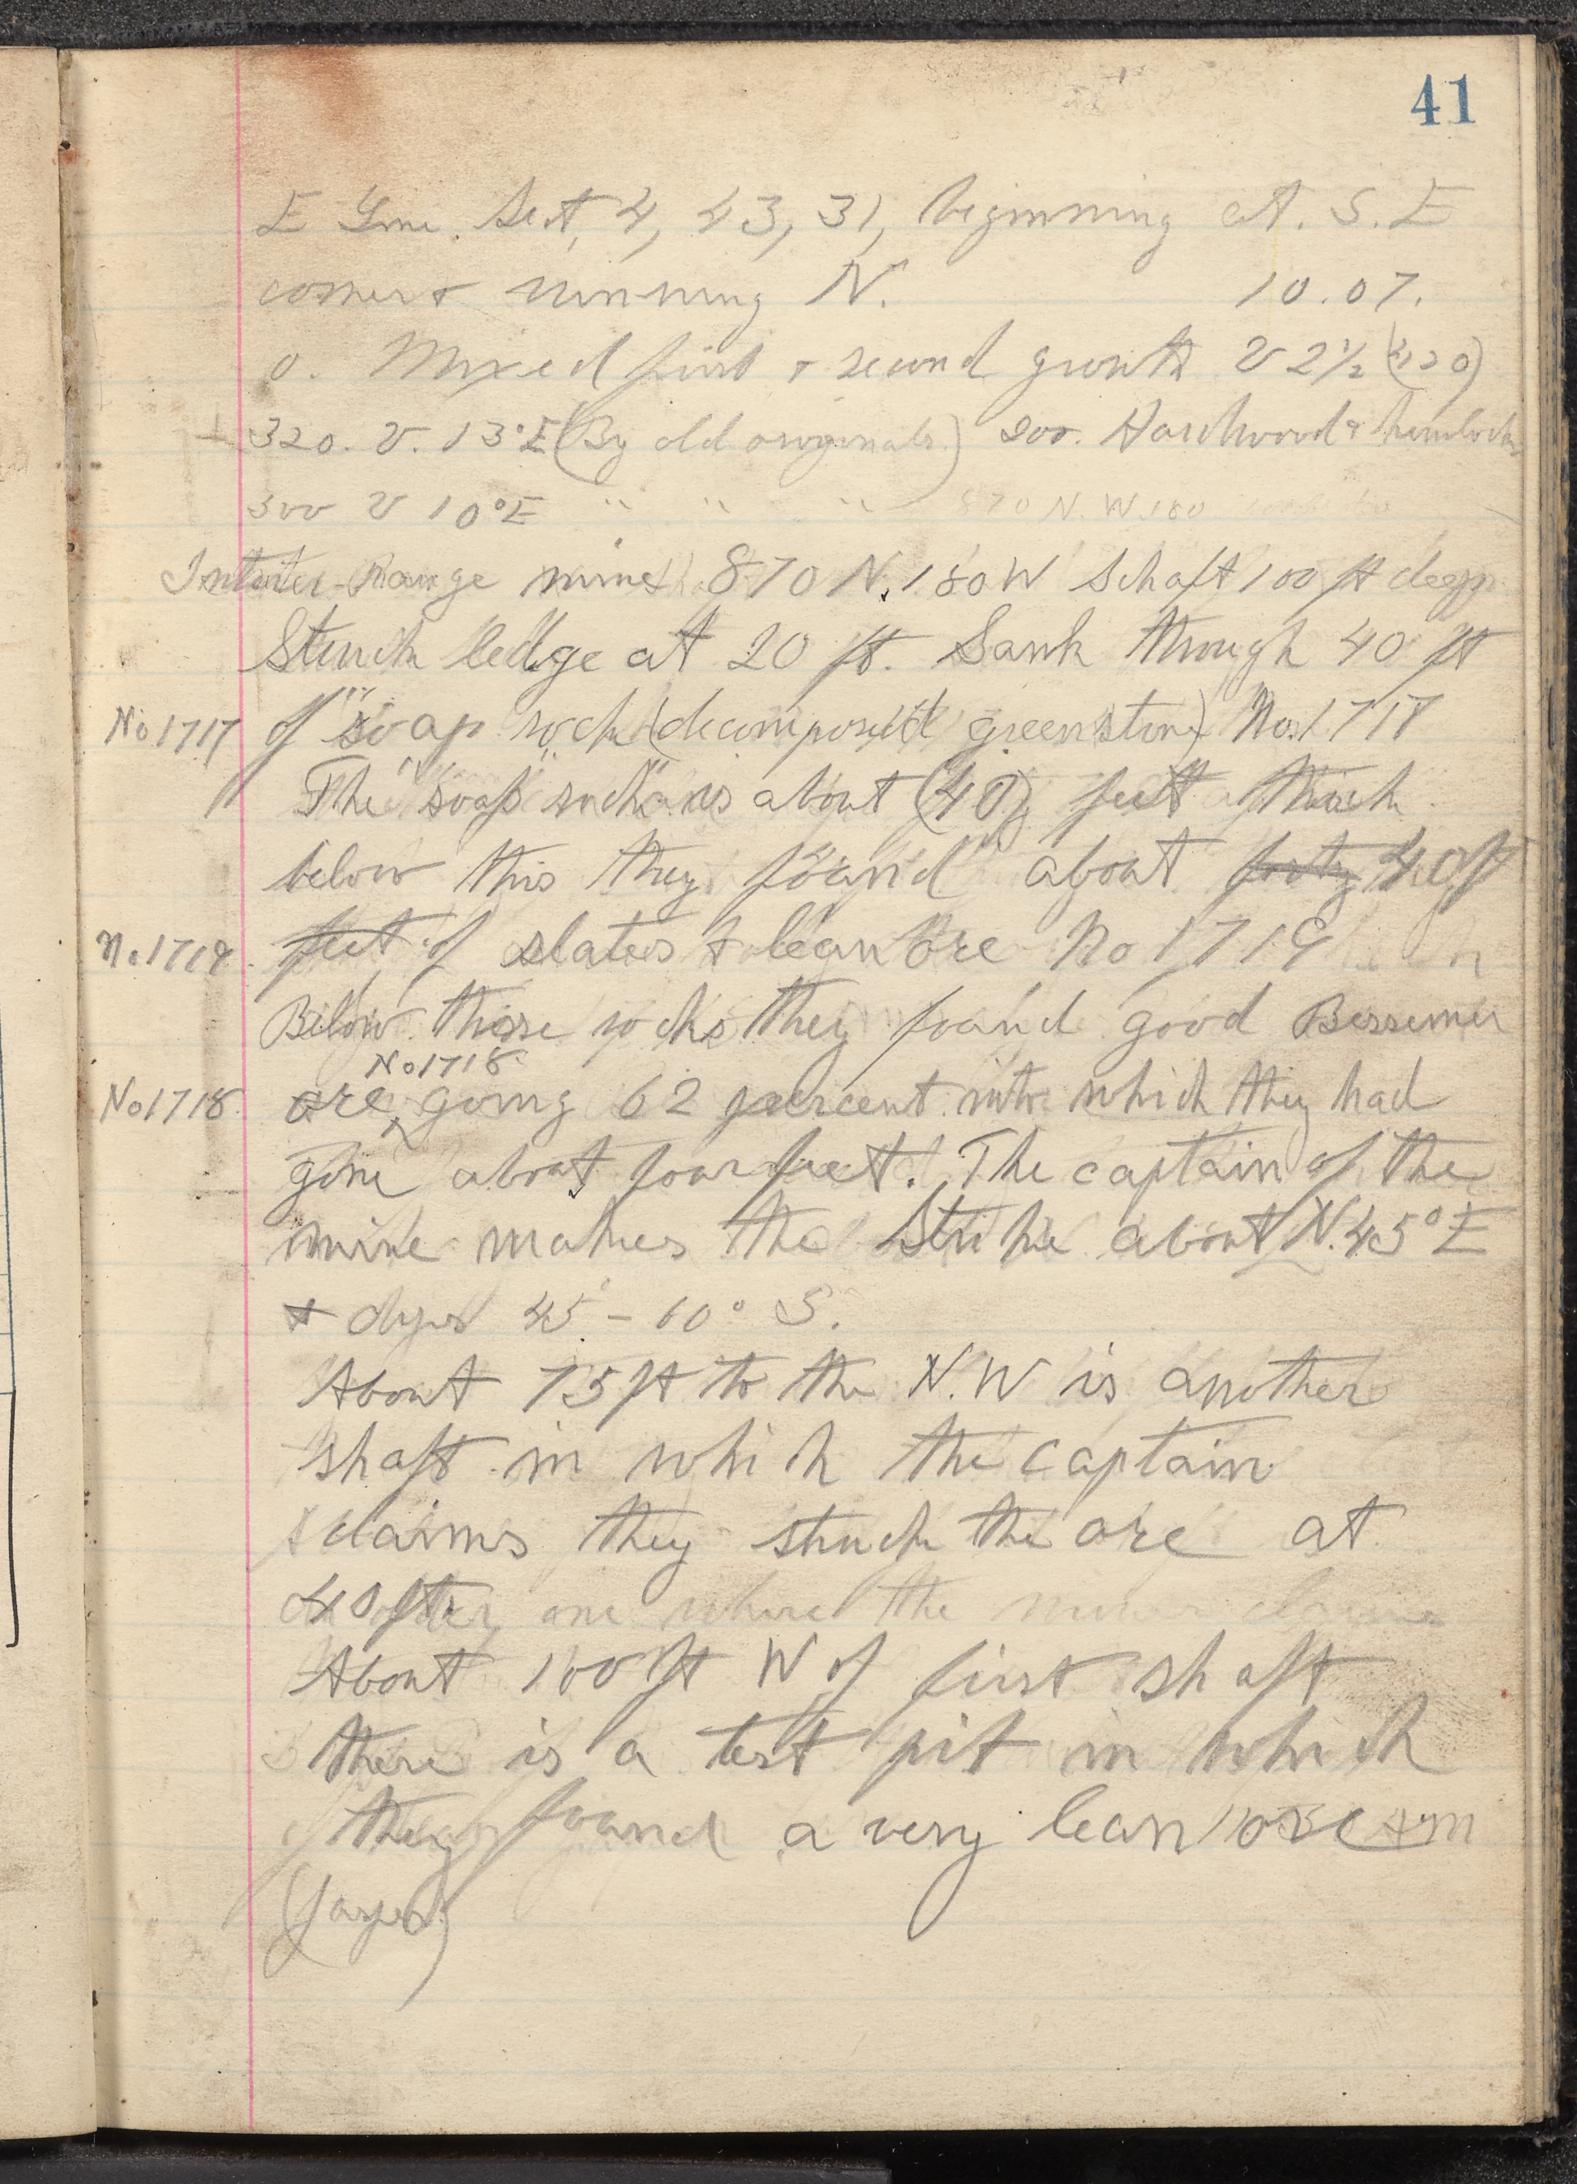 41
E Line. Sect, 4, 43, 31, beginning at. S. E
corner & running N. 10.07.
0. Mixed first & second growth V 2½ (320)
320. V. 13°E (By old originals) 200. Hardwood & hemlock
300 V 10°E " " " 870 N. W. 180
Inter-Range mine 870 N. 180 W Schaft 100 ft deep
Struck ledge at 20 ft. Sank through 40 ft
No 1717 of "soap" rock (decomposed greenstone) No. 1717
The "soap rock" is about (40) feet thick
below this they found about forty 40 ft
No. 1719 feet of slates & lean ore No 1719
Below these rocks they found good Bessemer
No 1718
No 1718 ore, going 62 percent into which they had
gone about four feet. The captain of the
mine makes the Strike about N. 45° E
& dips 45 - 60° S.
About 75 ft to the N.W is another
shaft in which the captain
claims they struck the ore at
40 ft one where the miner claims
About 100 ft W of first shaft
there is a test pit in which
they found a very lean ore in
(Jasper)